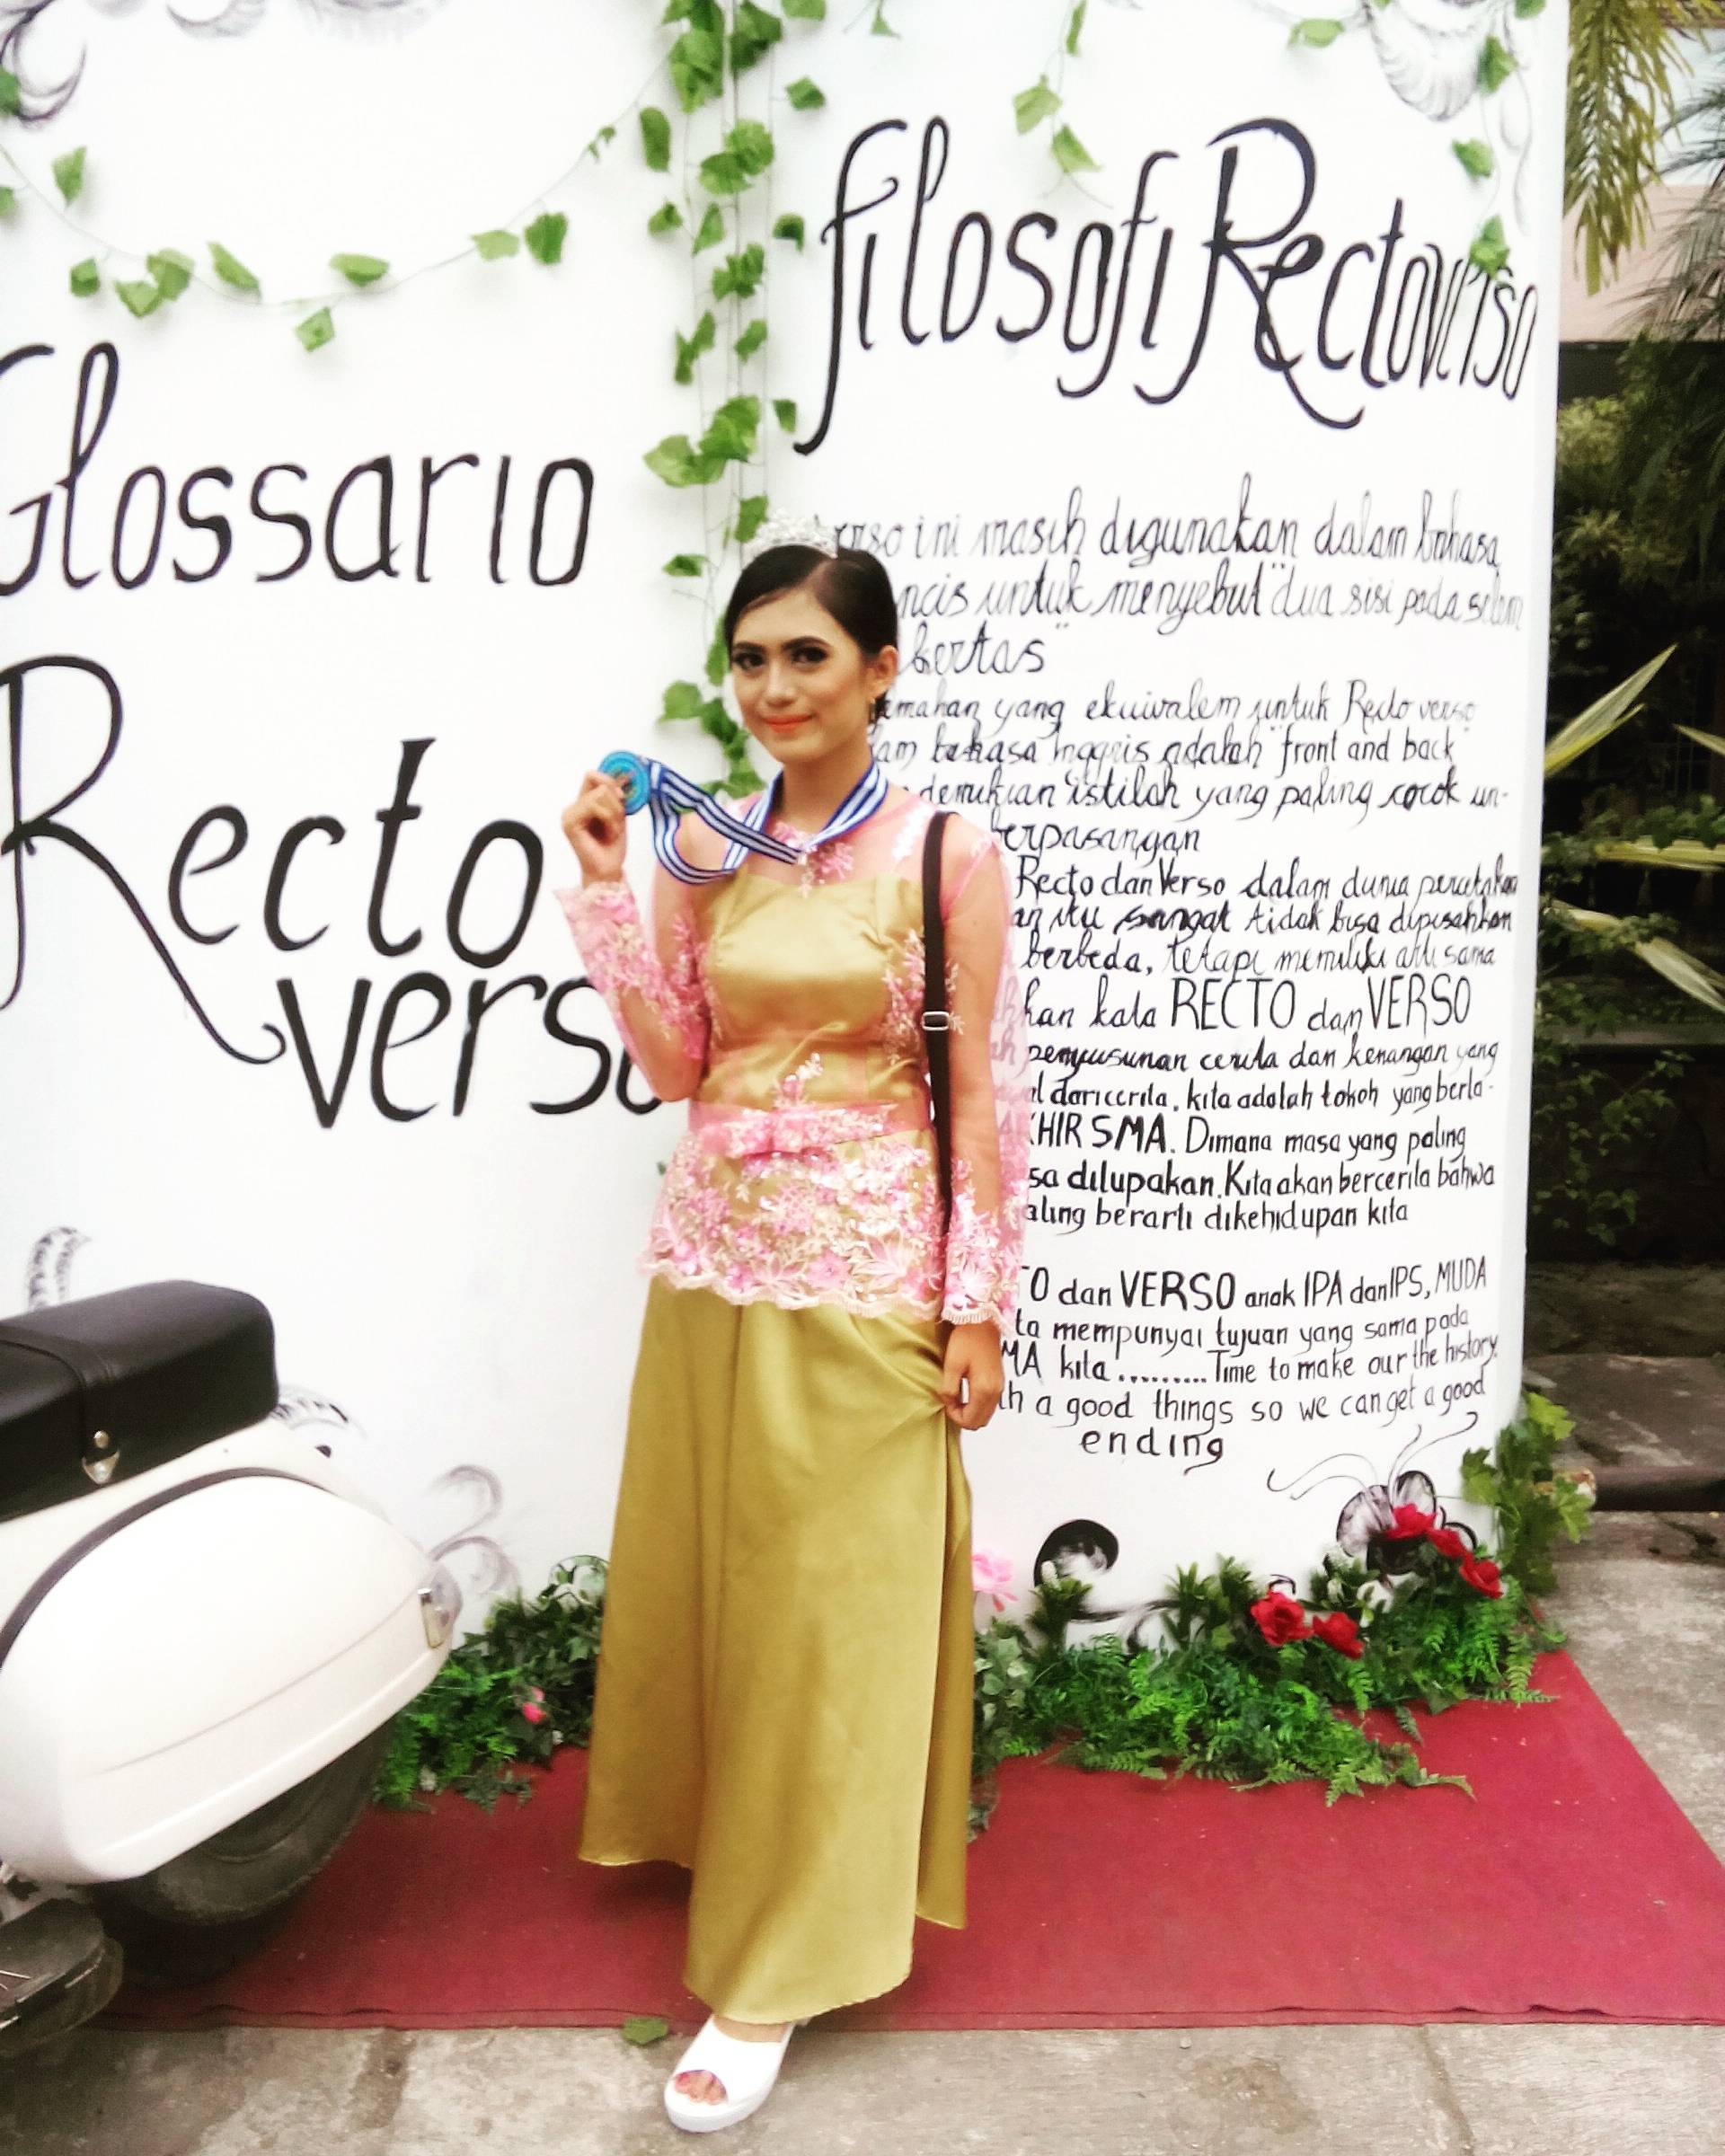 Glossario
Recto
verso
filosofi Rectoverso
ini masih digunakan dalam bahasa
untuk menyebut "dua sisi pada
kertas"
yang ekuivalem untuk Recto verso
bahasa Inggris adalah "front and back"
istilah yang paling cocok un-
berpasangan
Recto dan Verso dalam dunia percetakan
itu sangat tidak bisa dipisahkan
berbeda, tetapi memiliki arti sama
kata RECTO dan VERSO
penyusunan cerita dan kenangan yang
dari cerita, kita adalah tokoh yang berla-
SMA. Dimana masa yang paling
dilupakan. Kita akan bercerita bahwa
berarti dikehidupan kita
dan VERSO anak IPA dan IPS, MUDA
mempunyai tujuan yang sama pada
kita ......... Time to make our the history.
a good things so we can get a good
ending